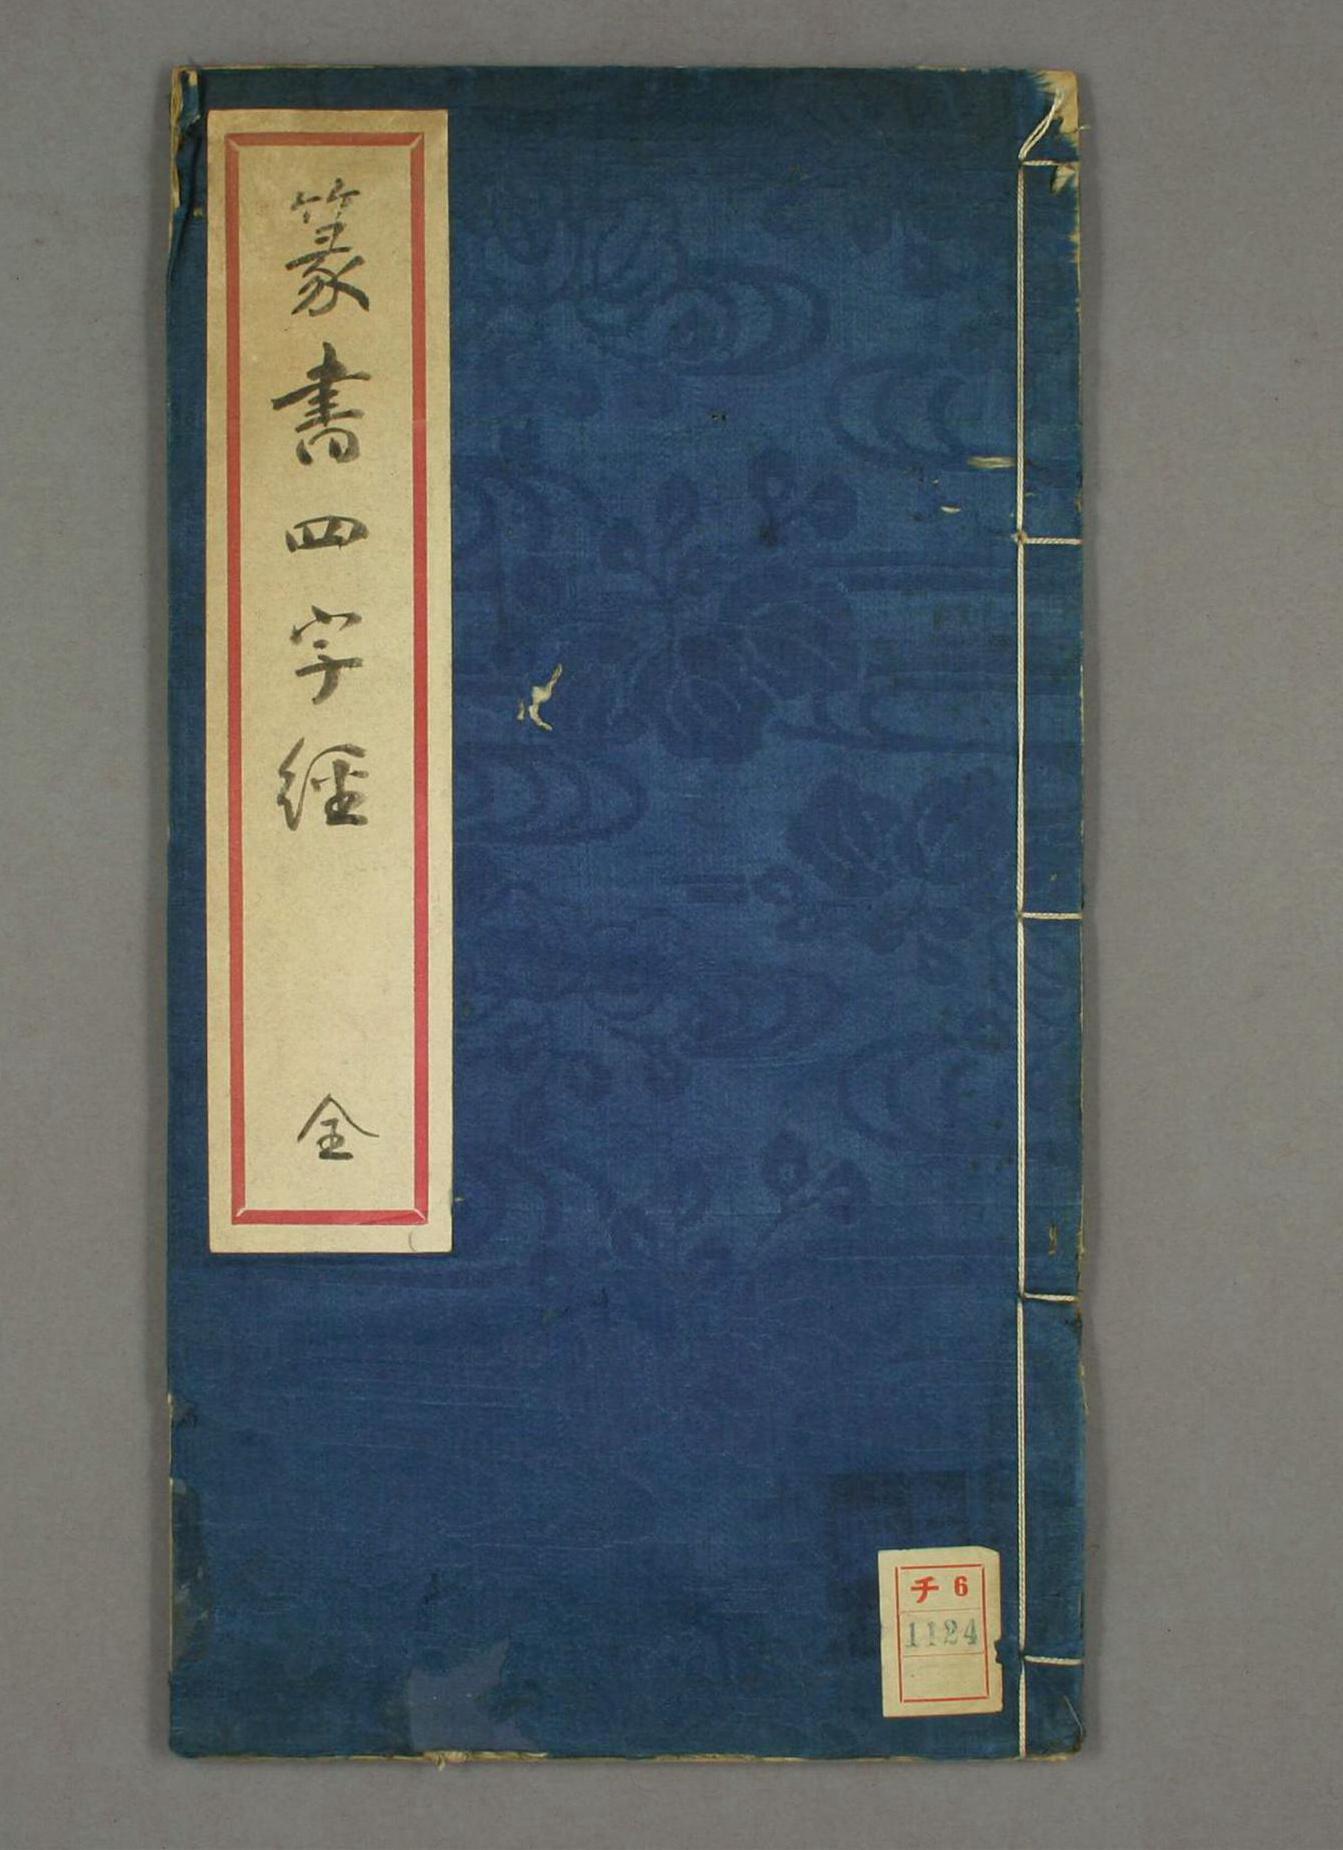 篆書四字經
全
チ6
1124